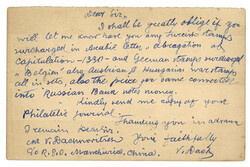 Dear Sir,
I shall be greatly obliged if you
will let me know have you any Turkish stamps
surcharged in Arabic letters "abrogation of
Capitulations -1330- and German stamps surcharged
"Belgien" also Austrian & Hungarian war stamps
all in sets, also the price for same converted
into Russian Bank notes money.
Kindly send me copy of your
Philatelic Journal.
Thanking you in advance
I remain Dear Sir,
Yours faithfully
V. Rach
c/o R.P.O. Manchuria, China.